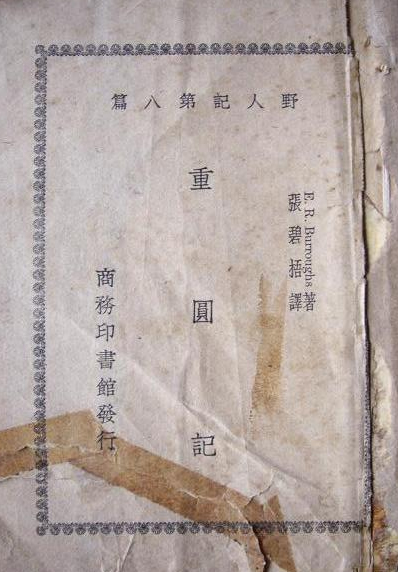 野人記第八篇
E. R. Burroughs 著
張碧梧譯
重圓記
商務印書館發行